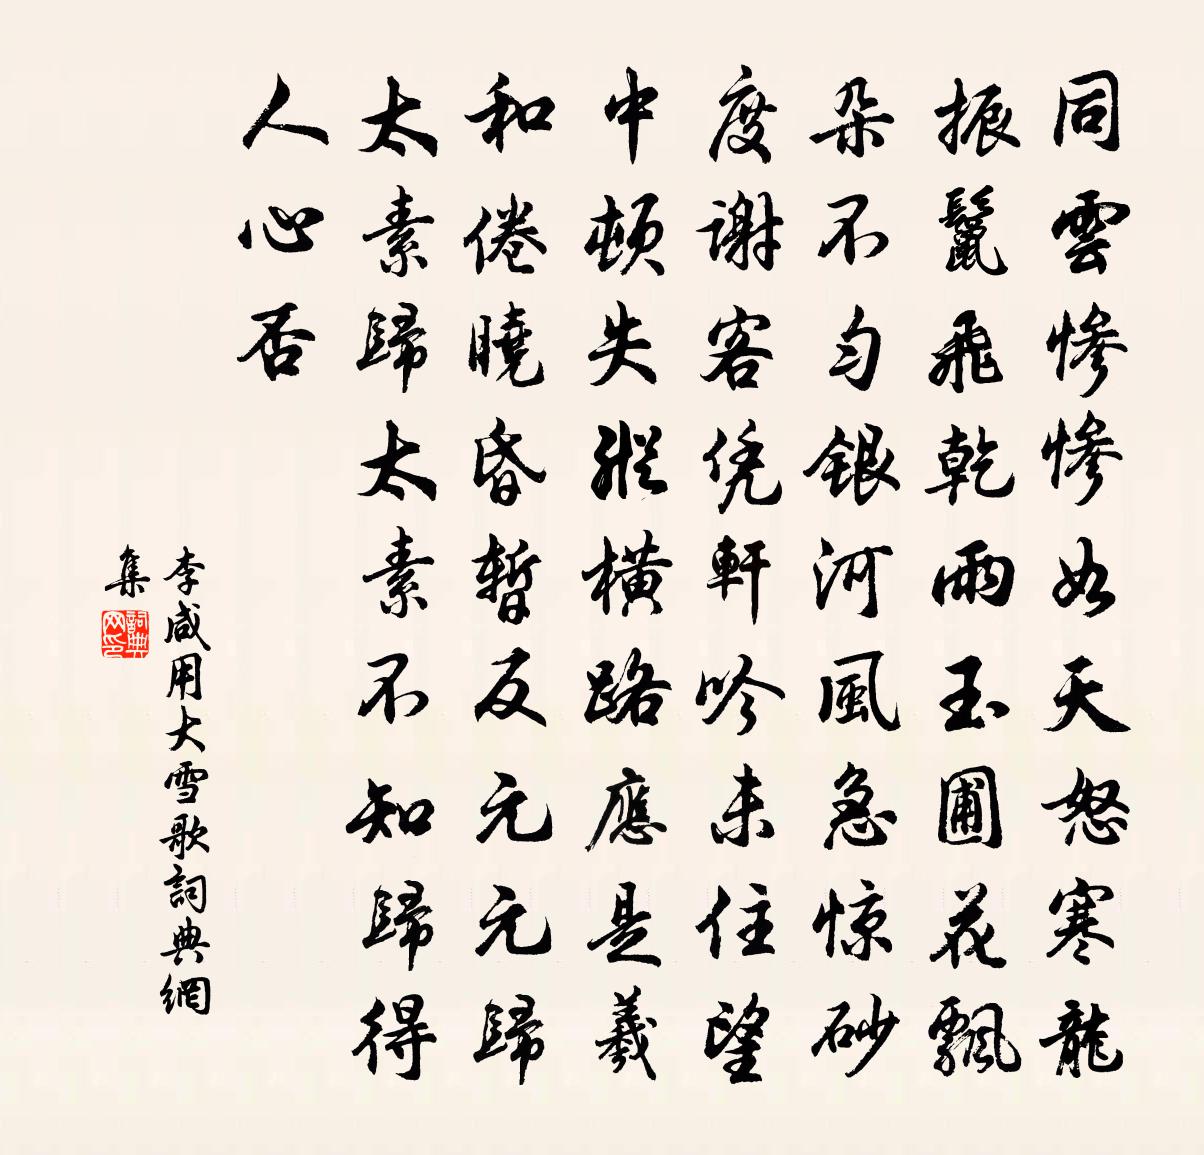 同雲慘慘如天怒寒龍
振鬣飛乾雨玉圃花飄
朵不匀銀河風急惊砂
度謝客凭軒吟未住望
中頓失縱横路應是羲
和倦曉昏暫反元元歸
太素歸太素不知歸得
人心否
李咸用大雪歌詞典網
集
詞典网印